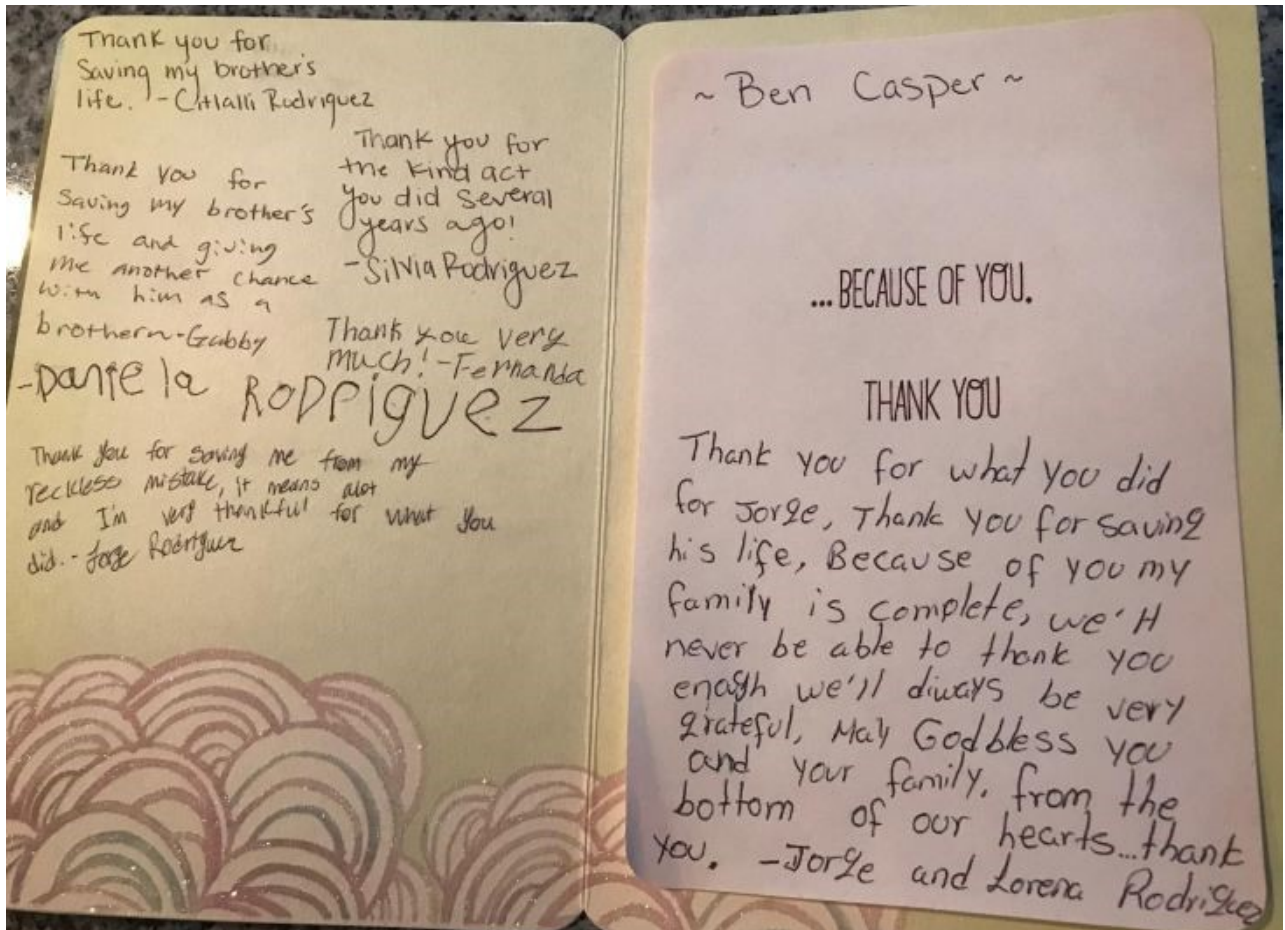 Thank you for
Saving my brother's
life. - Citlalli Rodriguez
Thank you for
the kind act
you did several
years ago!
- Silvia Rodriguez
Thank you for
saving my brother's
life and giving
me another chance
with him as a
brother - Gabby
Thank you very
much! - Fernanda
- Daniela RODriguez
Thank you for saving me from my
reckless mistake, it means alot
and I'm very thankful for what you
did. - Jorge Rodriguez
~ Ben Casper ~
...BECAUSE OF YOU.
THANK YOU
Thank you for what you did
for Jorge, Thank you for saving
his life, Because of you my
family is complete, we'll
never be able to thank you
enogh we'll always be very
grateful, May God bless you
and your family. from the
bottom of our hearts...thank
you. - Jorge and Lorena Rodriguez